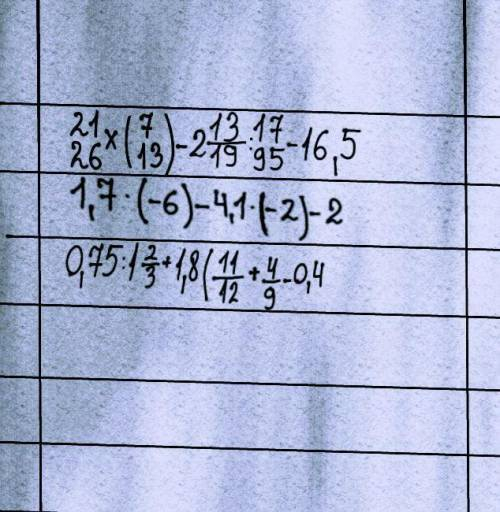 21/26 × (7/13) - 2 13/19 : 17/95 - 16,5
1,7 · (-6) - 4,1 · (-2) - 2
0,75 : 1 2/3 + 1,8 ( 11/12 + 4/9 - 0,4